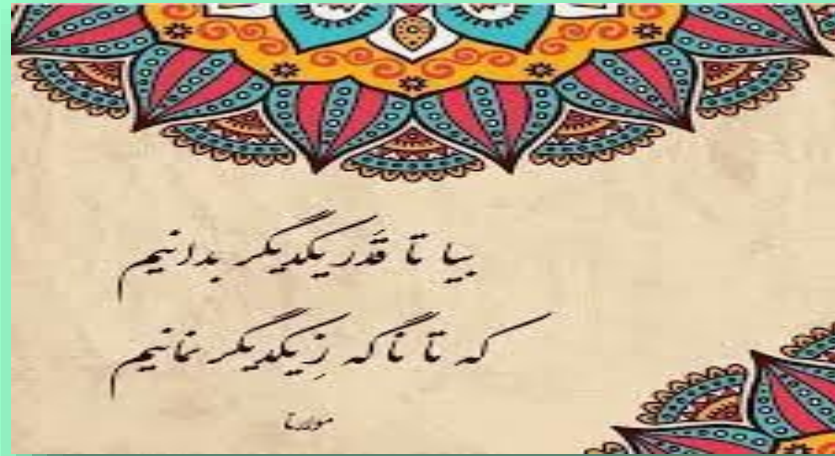 بیا تا قَدر یکدیگر بدانیم
که تا ناگه زِ یکدیگر نمانیم
مولانا